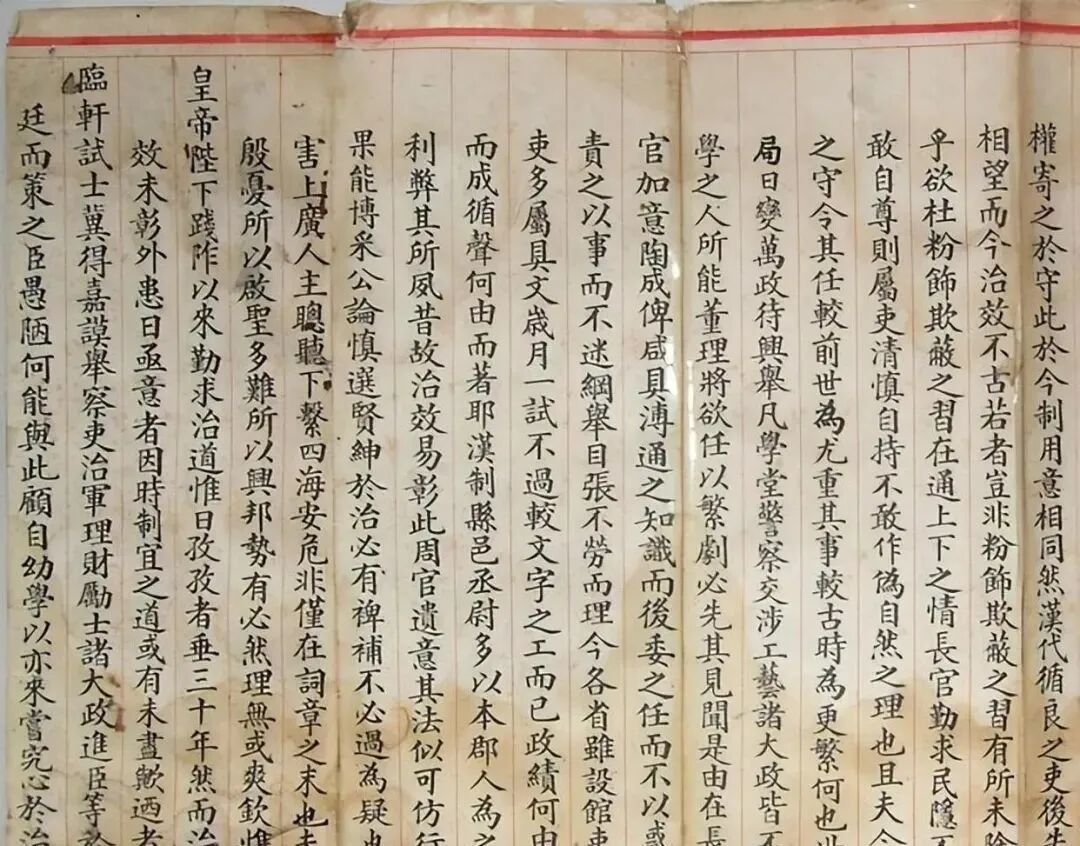 權寄之於守此於今制用意相同然漢代循良之吏後先
相望而今治效不古若者豈非粉飾欺蔽之習有所未除
乎欲杜粉飾欺蔽之習在通上下之情長官勤求民隱不
敢自尊則屬吏清慎自持不敢作偽自然之理也且夫今
之守令其任較前世為尤重其事較古時為更繁何也
局日變萬政待興舉凡學堂警察交涉工藝諸大政皆不
學之人所能董理將欲任以繁劇必先其見聞是由在長
官加意陶成俾咸具溥通之知識而後委之任而不以或
責之以事而不迷綱舉目張不勞而理今各省雖設館
吏多屬具文歲月一試不過較文字之工而已政績何由
而成循聲何由而著耶漢制縣邑丞尉多以本郡人為之
利弊其所夙昔故治效易彰此周官遺意其法似可仿行
果能博采公論慎選賢紳於治必有裨補不必過為疑也
害上廣人主聰聽下繫四海安危非僅在詞章之末也
殷憂所以啟聖多難所以興邦勢有必然理無或爽欽惟
皇帝陛下踐阼以來勤求治道惟日孜孜者垂三十年然而治
效未彰外患日亟意者因時制宜之道或有未盡歟迺者
臨軒試士冀得嘉謨舉察吏治軍理財勵士諸大政進臣等於
廷而策之臣愚陋何能與此顧自幼學以亦來嘗究心於治